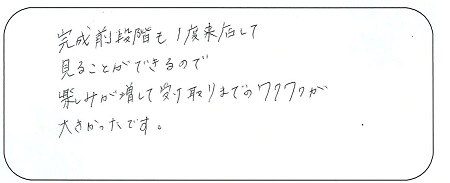 完成前段階も1度来店して
見ることができるので
楽しみが増して受け取りまでのワクワクが
大きかったです。